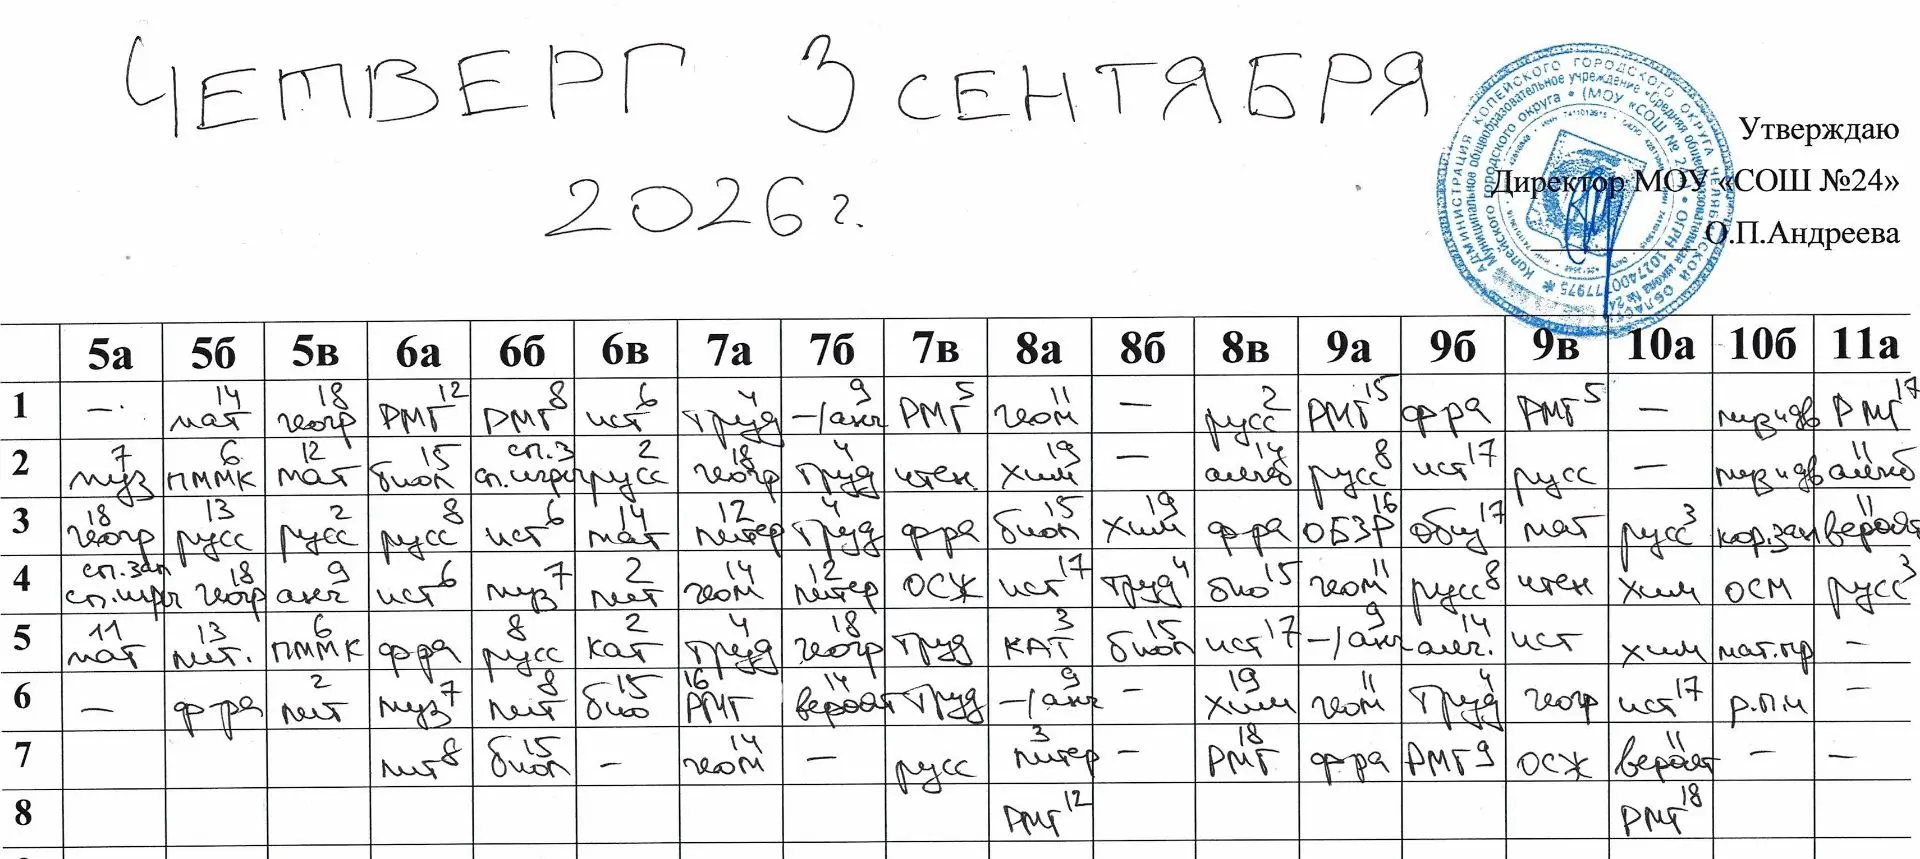 ЧЕТВЕРГ 3 СЕНТЯБРЯ
2026 г.
Утверждаю
Директор МОУ «СОШ №24»
О.П.Андреева
5а 5б 5в 6а 6б 6в 7а 7б 7в 8а 8б 8в 9а 9б 9в 10а 10б 11а
1 —. мат 14 геогр 18 РМГ 12 РМГ 8 ист 6 труд 4 —/анг 9 РМГ 5 геом 11 — русс 2 РМГ 15 ф-ра РМГ 5 — муз и дв РМГ 17
2 муз 7 ПММК 6 мат 12 биол 15 сп.з сп.игры русс 2 геогр 18 труд 4 чтен. хим 19 — алгеб 14 русс 8 ист 17 русс — муз и дв алгеб 11
3 геогр 18 русс 13 русс 2 русс 8 ист 6 мат 14 литер 12 труд 4 ф-ра биол 15 хим 19 ф-ра ОБЗР 16 общ 17 мат русс 3 кор.зан вероят 11
4 сп.зал сп.игры геогр 18 англ 9 ист 6 муз 7 лит 2 геом 14 литер 12 ОСЖ ист 17 труд 4 био 15 геом 11 русс 8 чтен хим ОСМ русс 3
5 мат 11 лит. 13 ПММК 6 ф-ра русс 8 кат 2 труд 4 геогр 18 труд КАТ 3 биол 15 ист 17 —/анг 9 алг. 14 ист хим мат.пр —
6 — ф-ра лит 2 муз 7 лит 8 био 15 РМГ 16 вероят 14 труд —/анг 9 — хим 19 геом 11 труд 4 геогр ист 17 р.п.и —
7 лит 8 биол 15 — геом 14 — русс литер 3 — РМГ 18 ф-ра РМГ 9 ОСЖ вероят 11 — —
8 РМГ 12 РМГ 18